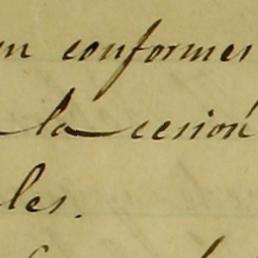 un conformes
la cesión
les.